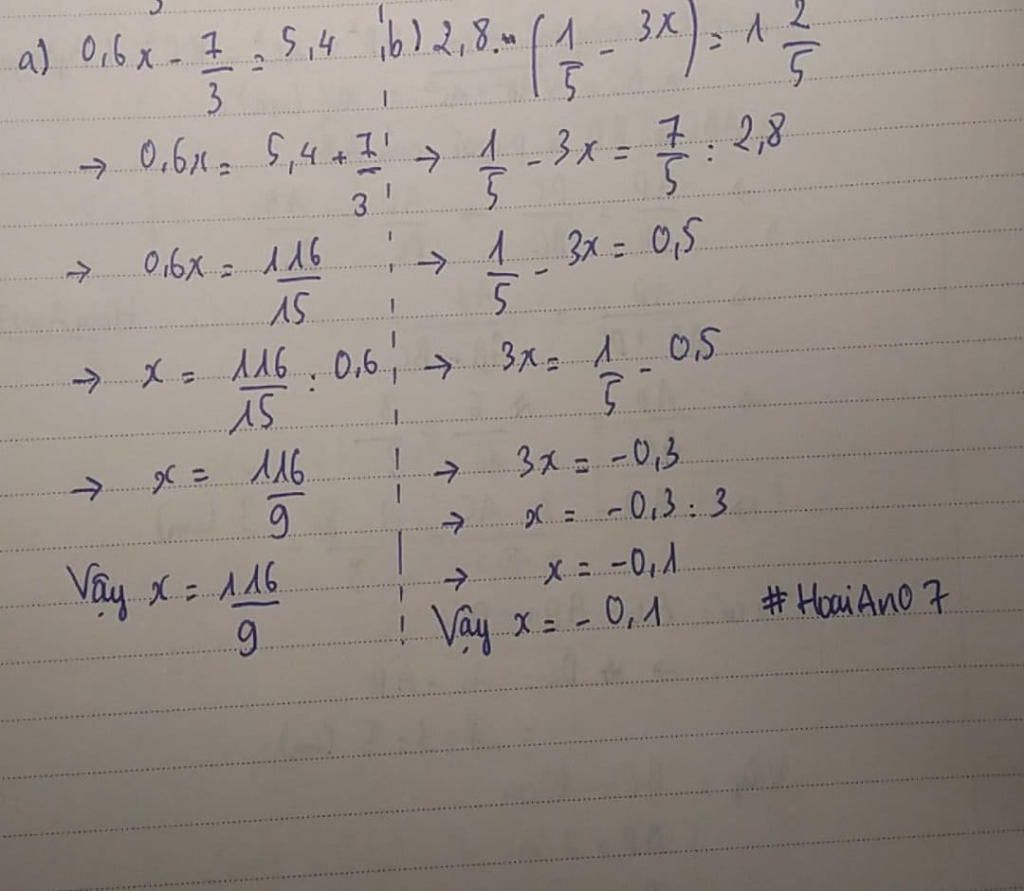 a) 0,6x - 7/3 = 5,4
→ 0,6x = 5,4 + 7/3
→ 0,6x = 116/15
→ x = 116/15 : 0,6
→ x = 116/9
Vậy x = 116/9
b) 2,8 . (1/5 - 3x) = 1 2/5
→ 1/5 - 3x = 7/5 : 2,8
→ 1/5 - 3x = 0,5
→ 3x = 1/5 - 0,5
→ 3x = -0,3
→ x = -0,3 : 3
→ x = -0,1
Vậy x = -0,1
#HoaiAn07